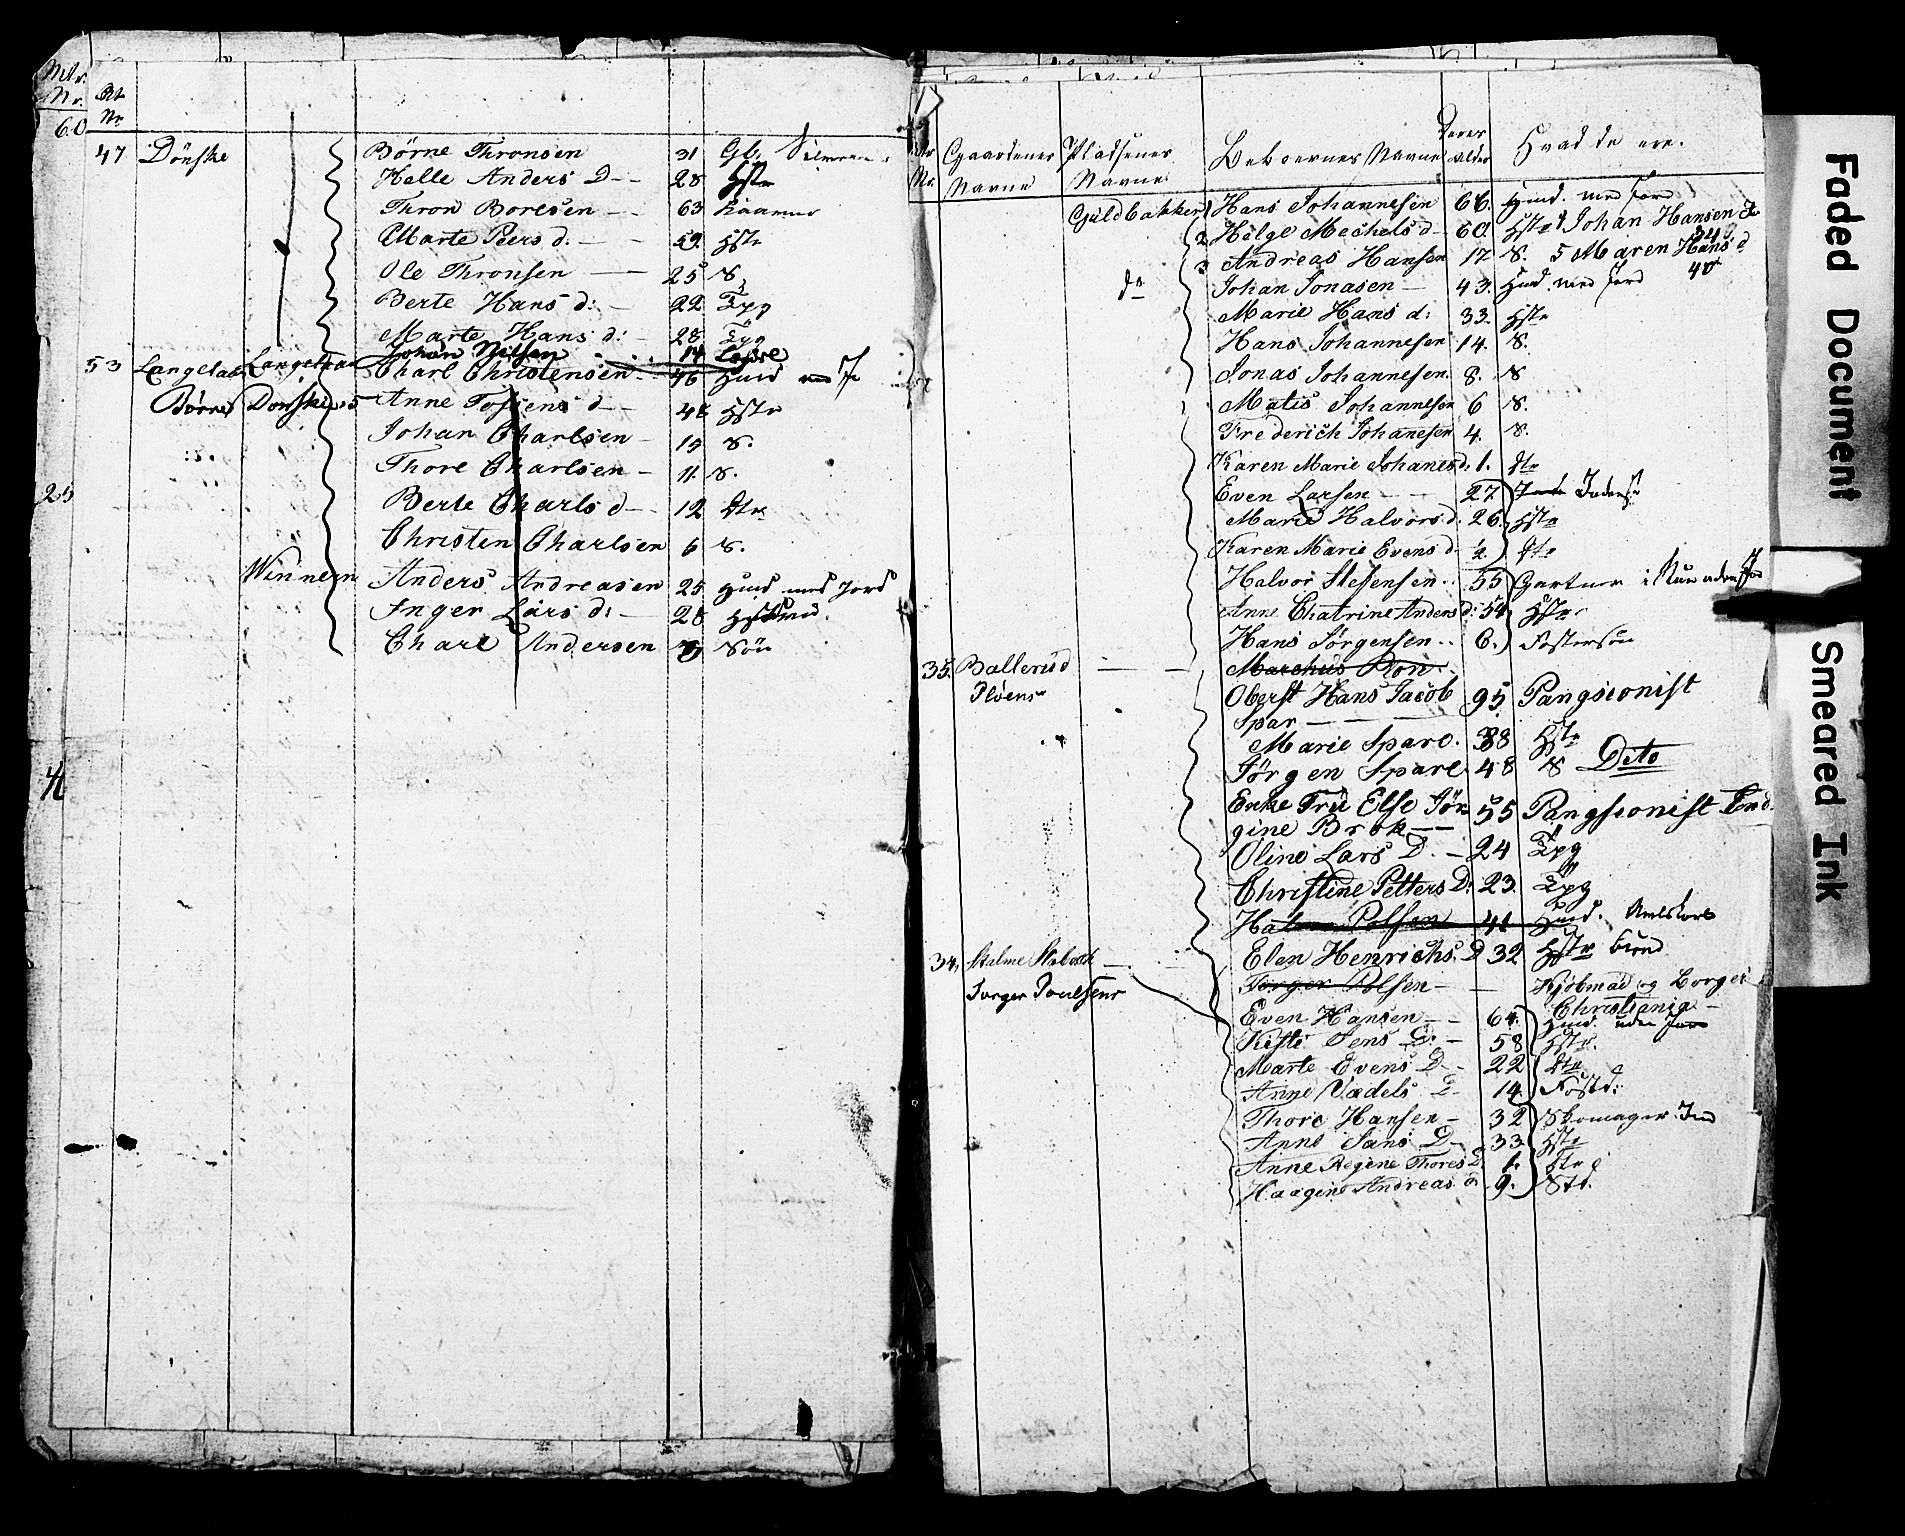 Mtr. Nr. Rt Nr
60
47 Dönske Börne Thronsen 31 Gb.
Helle Anders D 28 Hstr
Thron Boresen 63 Kaarmd
Marte Peers d. 59 Hstr
Ole Thronsen 25 S
Berte Hans d: 22 Tpg
Marte Hans d: 28 Tpg
Johan Nilsen 14 Lægd
53 Langeland Langeland Charl Christensen 46 Huusd med J
Börnes Donske 5 Anne Tossens d 48 Hstr
Johan Charlsen 15 S.
Thore Charlsen 11. S.
25 Berte Charls d 12 dtr
Christen Charlsen 6 S.
Winnern Anders Andreasen 25 Huusd med Jord
Inger Lars d: 28
Charl Andersen Sön
Nr. Gaardenes Navne Pladsenes Navne Beboernes Navne Deres Alder Hvad de ere.
Guldbakken 1 Hans Johannesen 66. Huusd. med Jord
2 Helge Mechels d 60. Hstr 4 Johan Hansen 34
3 Andreas Hansen 17 S. 5 Maren Hans d 40
do Johan Jonasen 43. Huusd. med Jord
Marie Hans d: 33. Hstr
Hans Johannesen 14. S.
Jonas Johannesen. 8. S
Matis Johannesen 6 S.
Frederich Johanesen 4. S.
Karen Marie Johanes d. 1. dtr
Even Larsen 27 Inderst
Marie Halvors d. 26. Hstr
Karen Marie Evens d. ½ dtr
Halvor Stefensen 55 Gartner
Anne Chatrine Anders d: 54 Hstr
Hans Jörgensen 6. Fostersön
35. Ballerud Marchus Ron
Plöens Oberst Hans Jacob 95 Pangsionist
Spar
Marie Spare. 38 Hstr
Jörgen Spare 48 S Dito
Enke Frü Else Jör 55 Pangsionist End
gine Brok
Oline Lars D. 24 Tpg
Christine Petters D: 23. Tpg
Polsen 41 Huusd.
Elen Henrichs. D 32 Hstr
34, Torger Polsen Kjöbmad og Borger
Torger Poulsens Christiania
Even Hansen 64. Huusd. uden Jord
Kisti Jens D: 58 Hstr.
Marte Evens D 22 dtr
Anne Vadels D. 14. Fostd:
Thore Hansen 32 Skomager Ind
Anne Jans D 33 Hstr
Anne Regine Thores D. 1. dtr
Haagine Andreas d 9. Std.
Faded Document
Smeared Ink